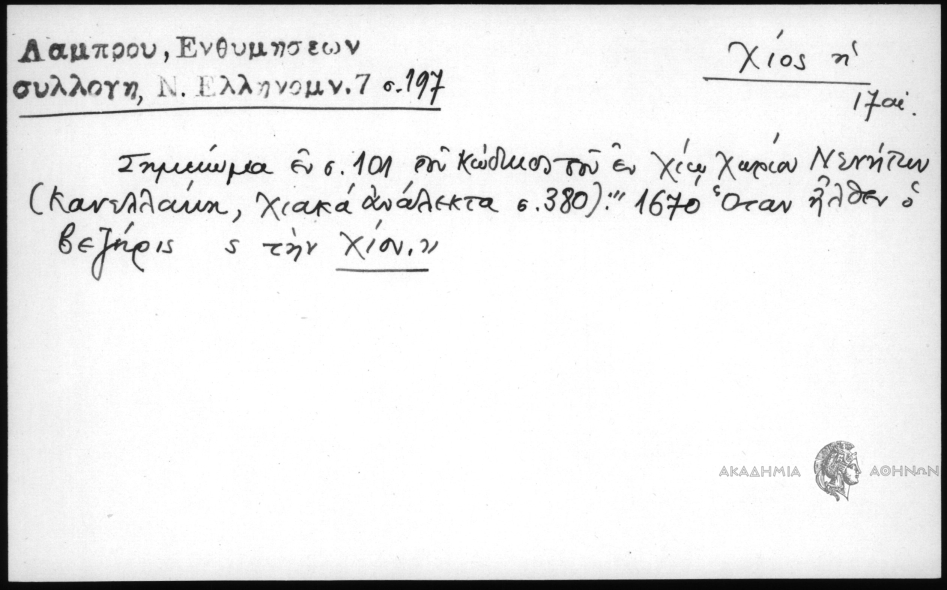 Λαμπρου, Ενθυμησεων
συλλογη, Ν. Ελληνομν. 7 σ. 197
Χίος ἡ
17 αἰ.
Σημείωμα ἐν σ. 101 τοῦ κώδικος τοῦ ἐν Χίῳ χωρίου Νεννήτων
(Κανελλάκη, Χιακά ἀνάλεκτα σ. 380): "1670 Ὅταν ἦλθεν ὁ
βεζήρις ς τὴν Χίον."
ΑΚΑΔΗΜΙΑ ΑΘΗΝΩΝ